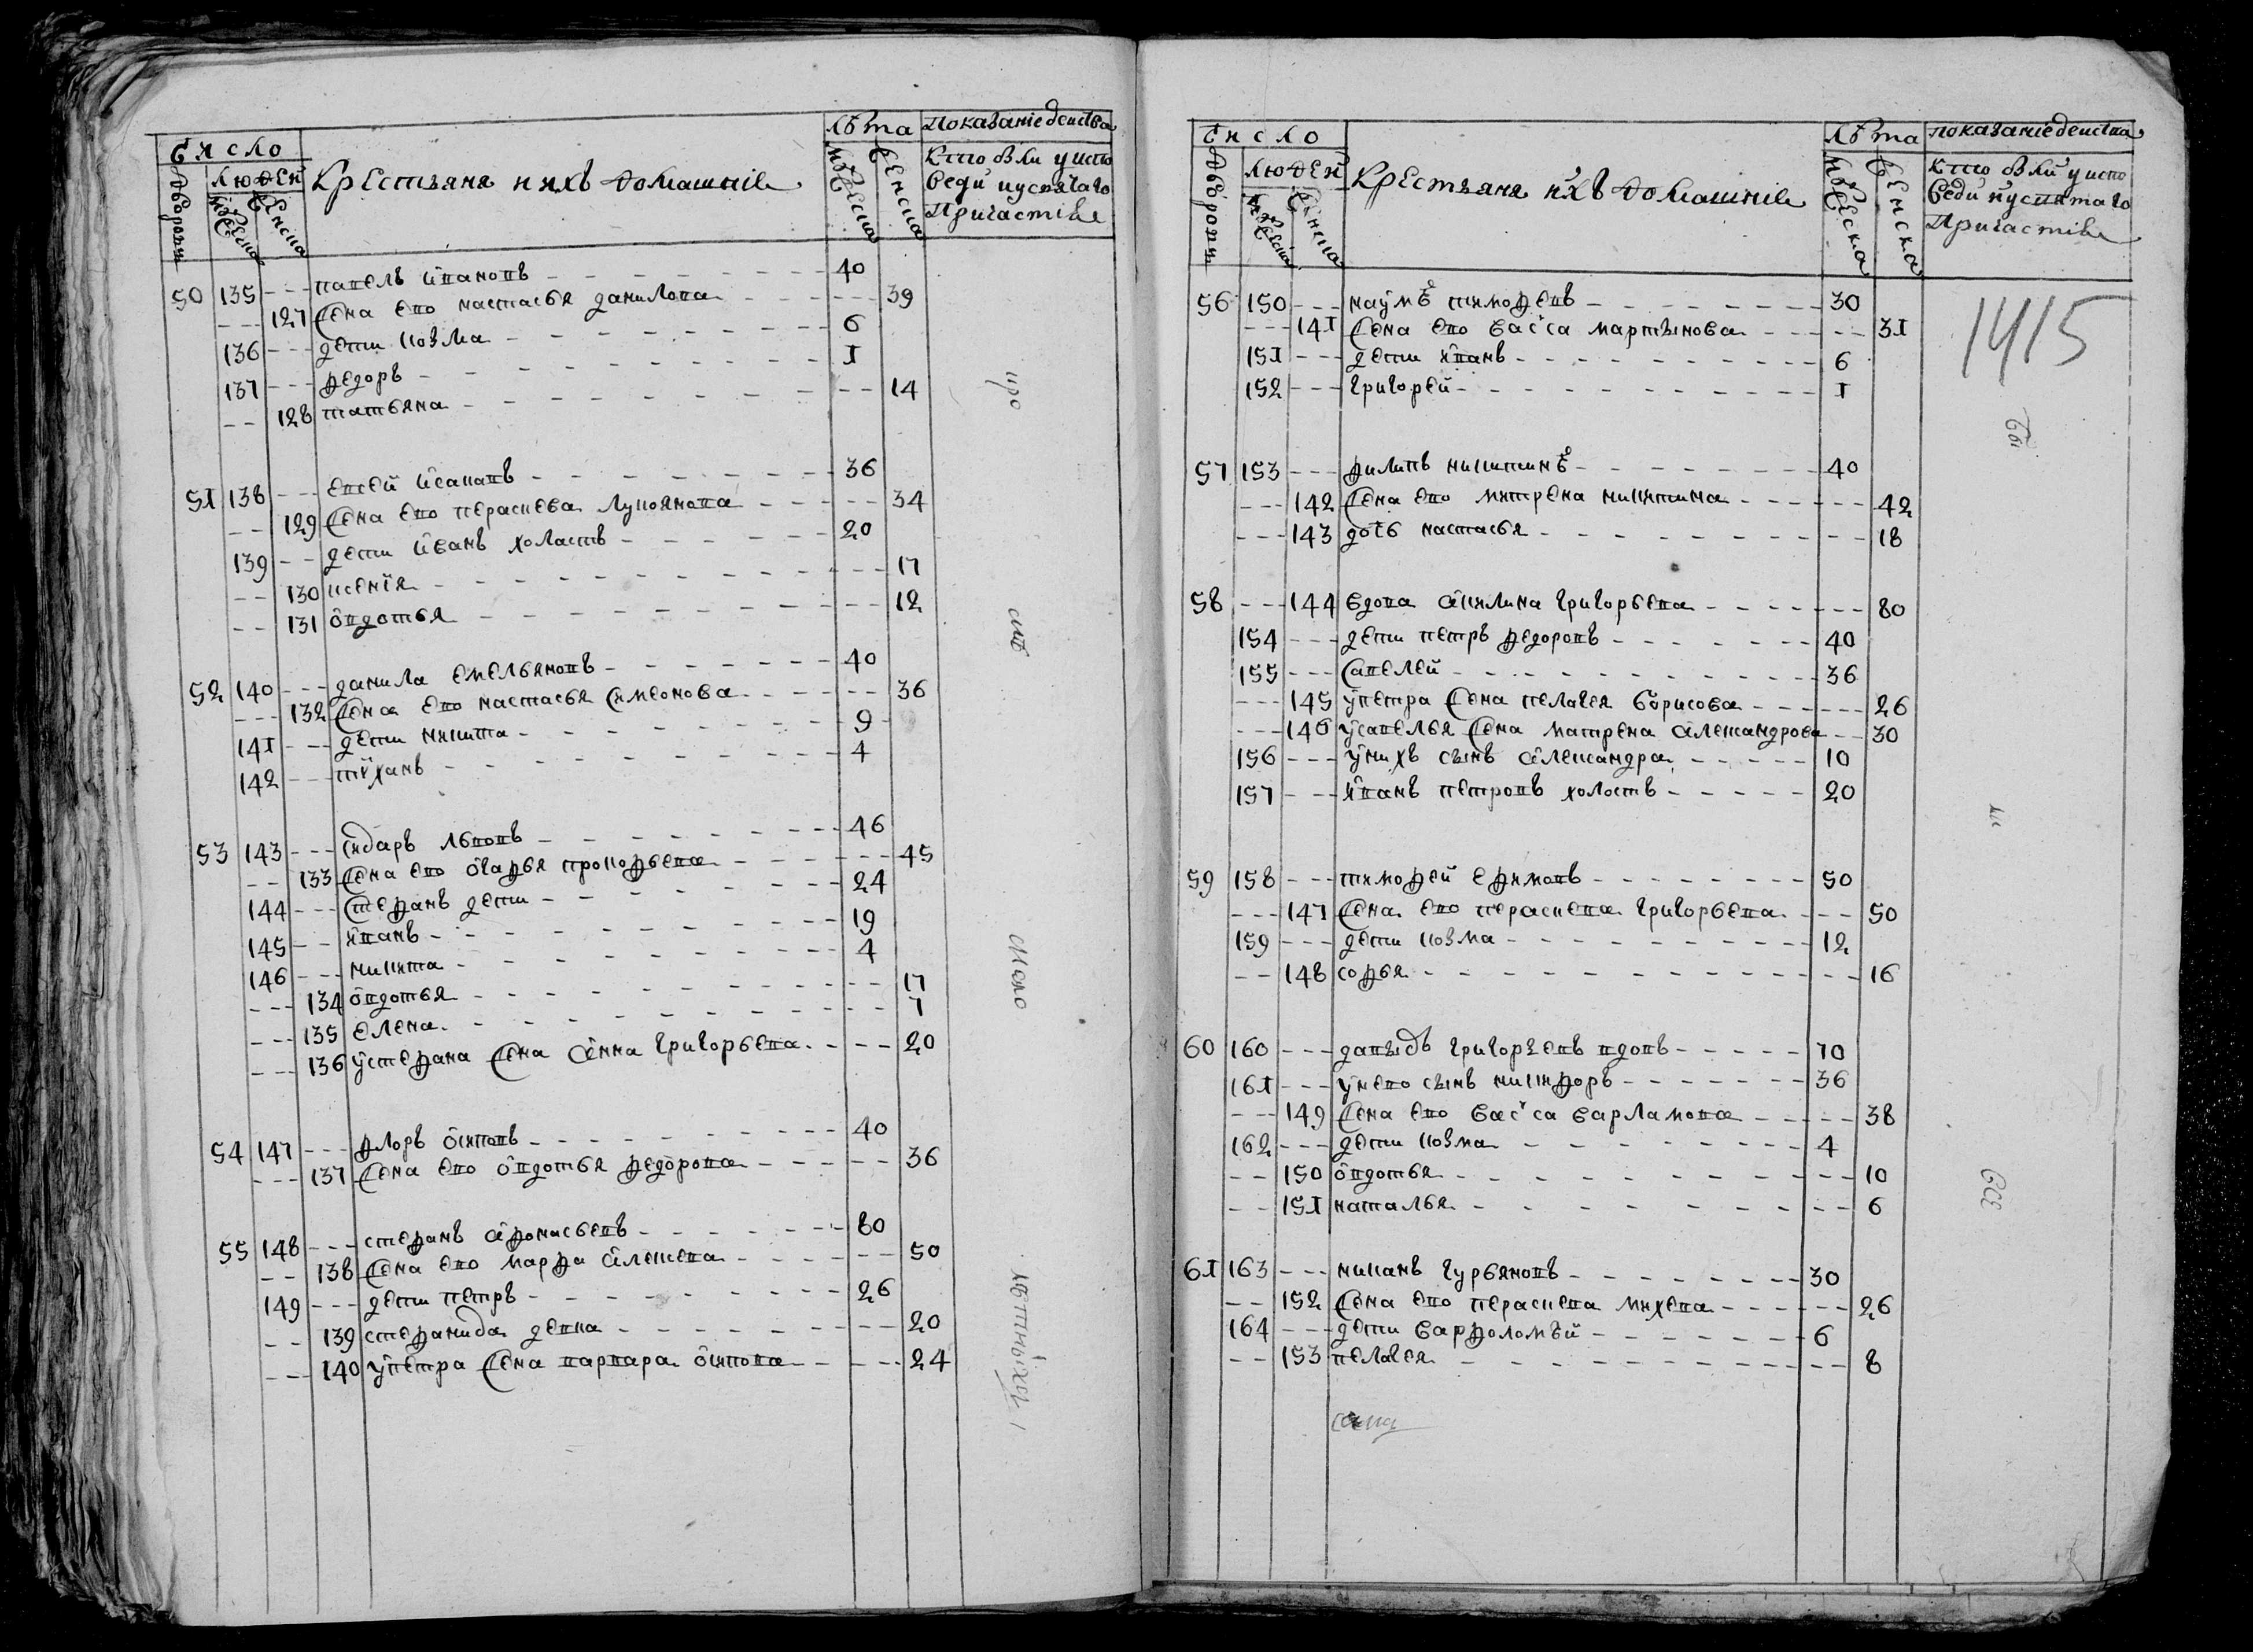 Число
Людей
Дворовъ
Мужеска
Женска
Крестьяня и ихъ домашнiе
Лѣта
Мужеска
Женска
Показанiе действа
Кто былъ у испо
веди и у святаго
Причастiя
50 135 --- павелъ ивановъ --- 40
--- 127 жена ево настасья данилова --- 39
136 --- дети козма --- 6
137 --- федоръ --- 1
--- 128 татьяна --- 14
51 138 --- евсей исаковъ --- 36
--- 129 жена ево парасковья лукоянова --- 34
139 --- дети иванъ холастъ --- 20
--- 130 ксения --- 17
--- 131 овдотья --- 12
52 140 --- данила емельяновъ --- 40
--- 132 жена ево настасья симеонова --- 36
141 --- дети никита --- 9
142 --- тиханъ --- 4
53 143 --- сидаръ львовъ --- 46
--- 133 жена ево огафья прокофьева --- 45
144 --- стефанъ дети --- 24
145 --- иванъ --- 19
146 --- никита --- 4
--- 134 овдотья --- 17
--- 135 елена --- 7
--- 136 у стефана жена анна григорьева --- 20
54 147 --- флоръ осиповъ --- 40
--- 137 жена ево овдотья федорова --- 36
55 148 --- стефанъ афонасьевъ --- 80
--- 138 жена ево марфа алексева --- 50
149 --- дети петръ --- 26
--- 139 стефанида девка --- 20
--- 140 у петра жена варвара осипова --- 24
Число
Людей
Дворовъ
Мужеска
Женска
Крестьяня и ихъ домашнiе
Лѣта
Мужеска
Женска
показанiе действа
Кто былъ у испо
веди и у святаго
Причастiя
1415
56 150 --- наумъ тимофевъ --- 30
--- 141 жена ево васса мартынова --- 31
151 --- дети иванъ --- 6
152 --- григорей --- 1
57 153 --- филипъ никитинъ --- 40
--- 142 жена ево матрена никитина --- 42
--- 143 дочь настасья --- 18
58 --- 144 вдова акилина григорьева --- 80
154 --- дети петръ федоровъ --- 40
155 --- савелей --- 36
--- 145 у петра жена пелагея борисова --- 26
--- 146 у савелья жена матрена александрова --- 30
156 --- у нихъ сынъ александра --- 10
157 --- иванъ петровъ холостъ --- 20
59 158 --- тимофей ефимовъ --- 50
--- 147 жена ево параскева григорьева --- 50
159 --- дети козма --- 12
--- 148 софья --- 16
60 160 --- давыдъ григорьевъ вдовъ --- 70
161 --- у него сынъ никифоръ --- 36
--- 149 жена ево васса варламова --- 38
162 --- дети козма --- 4
--- 150 овдотья --- 10
--- 151 наталья --- 6
61 163 --- никанъ гурьяновъ --- 30
--- 152 жена ево параскева михева --- 26
164 --- дети варфоломѣй --- 6
--- 153 пелагея --- 8